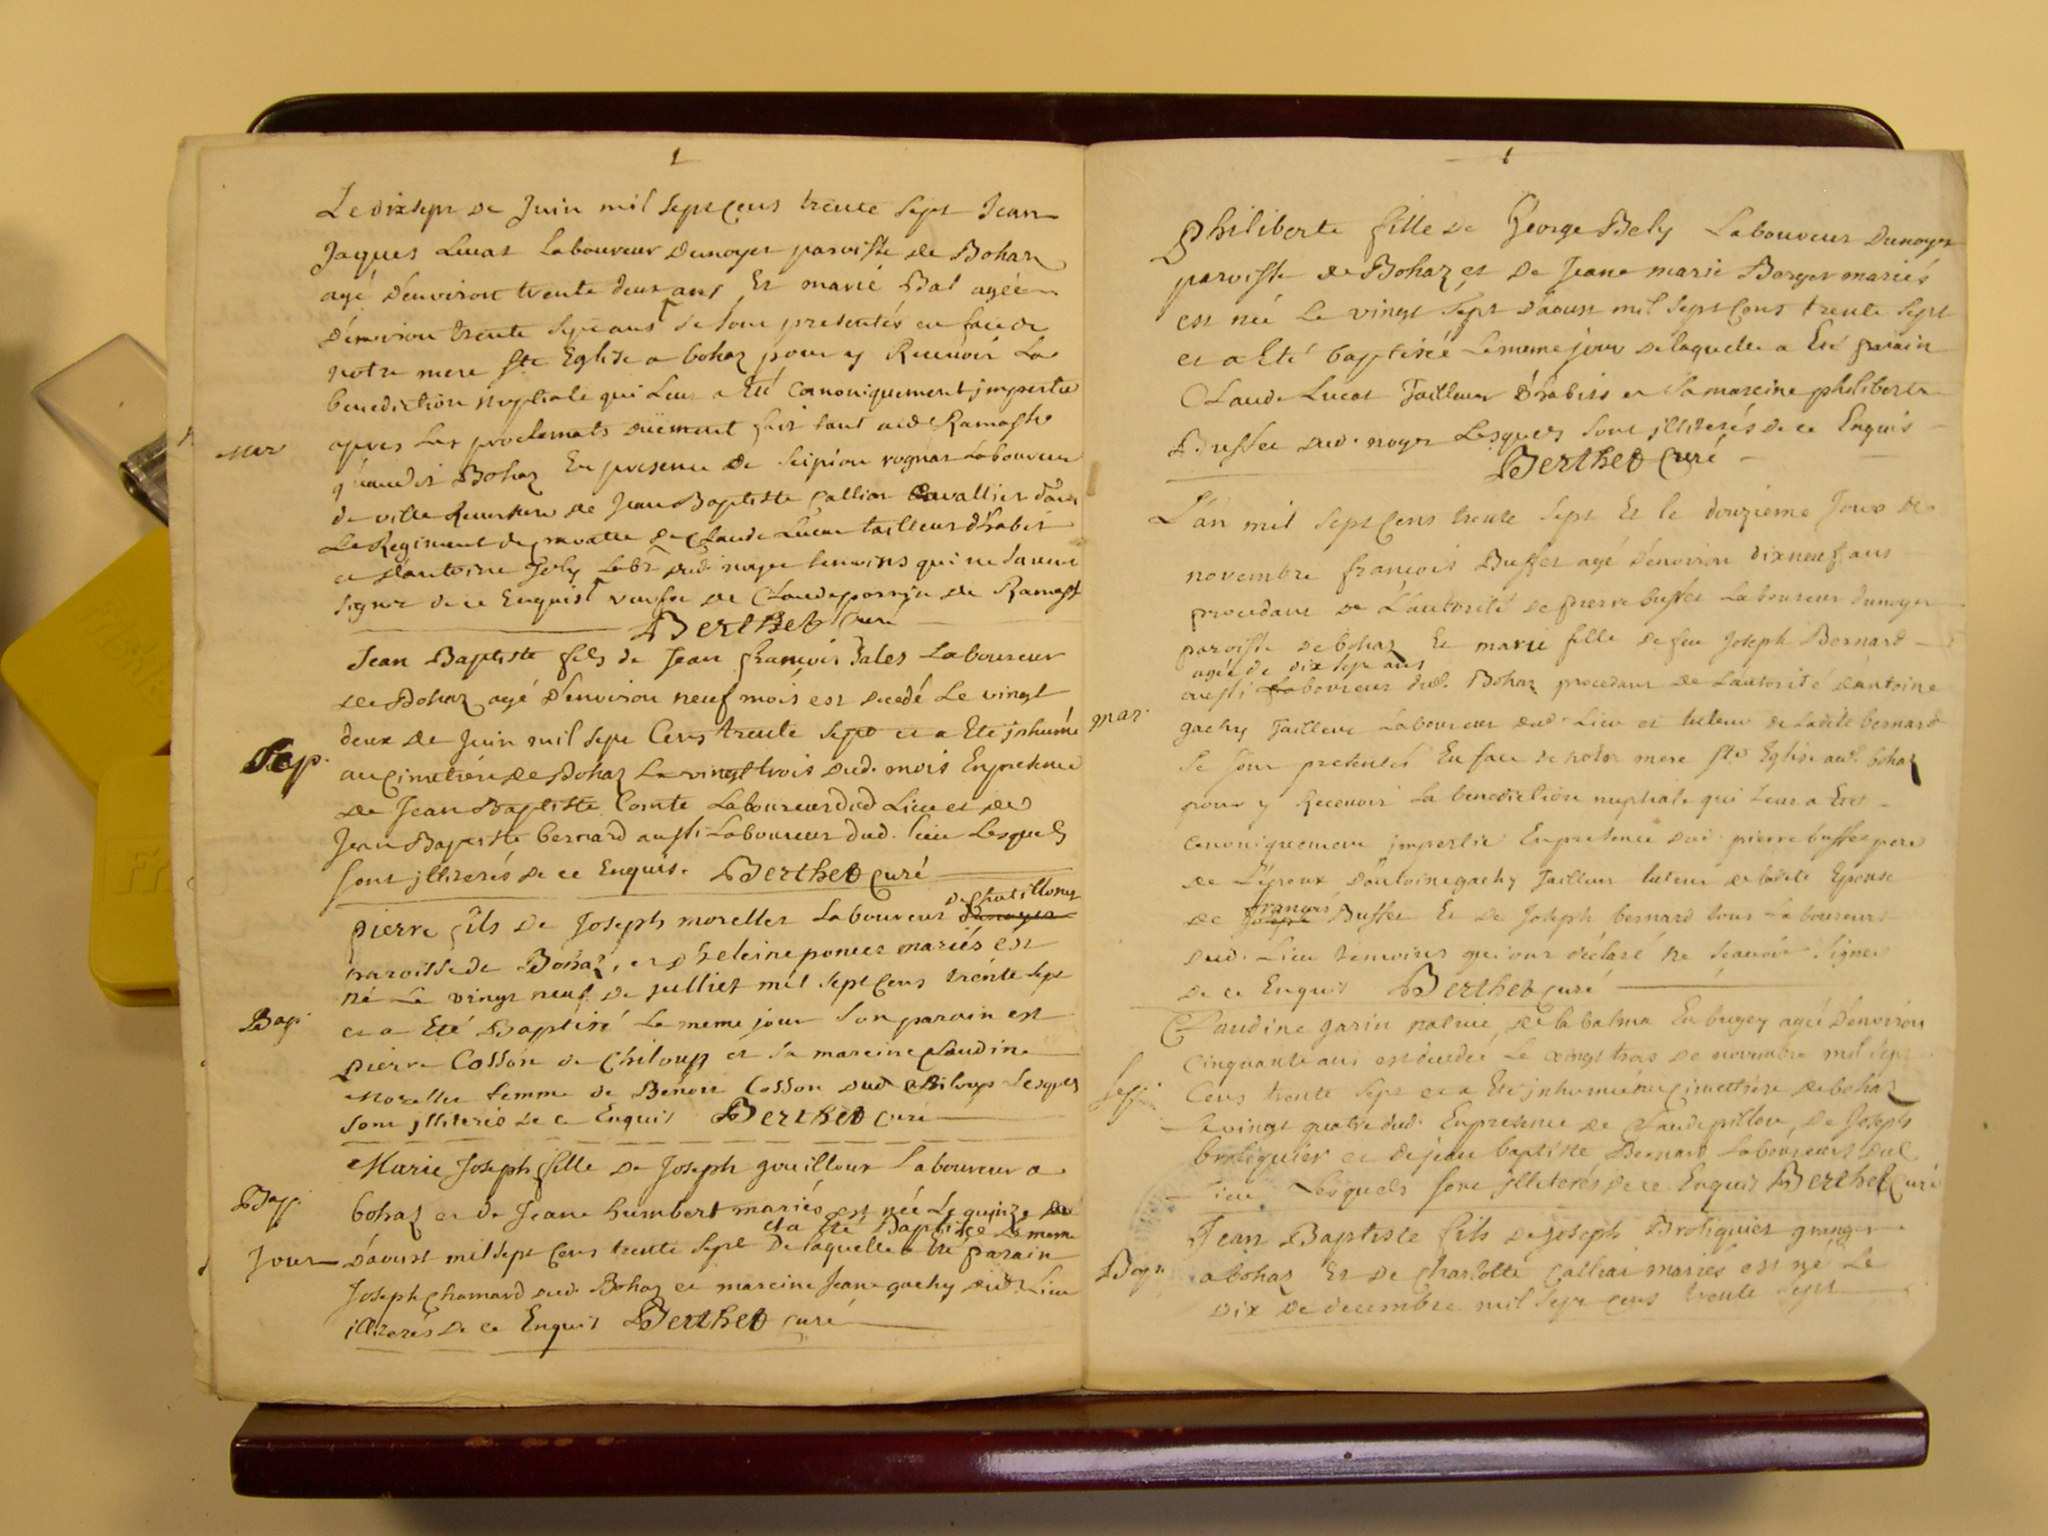 Le dixsept de Juin mil sept Cens trente sept Jean
Jaques Lucas Laboureur dunoyer paroisse de Bohaz
agé d'environ trente deux ans Et marie Bal agée
d'environ trente sept ans se sont presentés en face de
notre mere ste Eglise a bohaz pour y Recevoir La
benediction nuptiale qui Leur a Eté canoniquement impartie
apres Les proclamats düement fait tant aud Ramasse
mar
qu'audit Bohaz En presence de Scipion rognat Laboureur
de ville Reversure de Jean Baptiste Callias Cavallier dans
Le Regiment de de Claude Lucas tailleur d'habit
et d'antoine Joly Labr dud. noyer temoins qui ne savent
signer de ce Enquis veufve de Claude de Ramasse
Berthet Curé
Jean Baptiste fils de Jean francois Jales Laboureur
de Bohaz agé d'environ neuf mois est decedé Le vingt
deux de Juin mil sept Cens trente sept et a Eté inhumé
Sep.
au Cimetiere de Bohaz Le vingt trois dud. mois En presence
de Jean Baptiste Comte Laboureur dud Lieu et de
Jean Baptiste bernard aussi Laboureur dud. lieu Lesquels
sont illiterés de ce Enquis. Berthet Curé
de Chatillonet
pierre fils de Joseph morellet Laboureur dunoyer
paroisse de Bohaz, et d'heleine poncet mariés est
né Le vingt neuf de julliet mil sept Cens trente sept
Bap.
et a Eté Baptisé Le meme jour son parain est
pierre Cosson de Chiloup et sa mareine Claudine
morellet femme de Benoit Cosson dud Chiloup Lesquels
sont illiterés de ce Enquis Berthet Curé
Marie Joseph fille de Joseph gouilloux Laboureur a
Bap.
bohaz et de Jeane humbert mariés est née Le quinze de
et a été Baptisée Le meme
Jour
d'aoust mil sept Cens trente sept de laquelle a Eté parain
Joseph Chamard dud. Bohaz et mareine Jeane gachy dud. Lieu
illiterés de ce Enquis Berthet curé
Philiberte fille de George Bely Laboureur dunoyer
paroisse de Bohaz et de Jeane marie Borger mariés
est née Le vingt sept d'aoust mil sept Cens trente sept
et a Eté baptisée Le meme jour de laquelle a Eté parain
Claude Lucas Tailleur d'habits et sa mareine philiberte
Buffet dud. noyer Lesquels sont illiterés de ce Enquis
Berthet Curé
L'an mil sept Cens trente sept Et le douzième Jour de
novembre francois Buffet agé d'environ dixneuf ans
procedant de L'autorité de pierre buffet Laboureur dunoyer
paroisse de bohaz Et marie fille de feu Joseph Bernard
agée de dix sept ans
aussi Laboureur dud. Bohaz procedant de L'autorité d'antoine
mar.
gachy Tailleur Laboureur dud. Lieu et tuteur de Ladite bernard
se sont presentés En face de notre mere ste Eglise aud. bohaz
pour y Recevoir La benediction nuptiale qui Leur a Eté
canoniquement impartie En presence dud. pierre buffet pere
de L'epoux d'antoine gachy Tailleur tuteur de Ladite Epouse
françois
de Joseph Buffet Et de Joseph bernard tous Laboureurs
dud. Lieu temoins qui ont declaré ne scavoir signer
de ce Enquis Berthet curé
Claudine garin native de la balma En bugey agée d'environ
cinquante ans est decedée Le vingt trois de novembre mil sept
Sep.
Cens trente sept et a Eté inhumée au Cimettiere de bohaz
Le vingt quatre dud. En presence de Claude pillou, de Joseph
brotiquier et de jean baptiste Bernard Laboureurs dud
Lieu Lesquels sont illiterés de ce Enquis Berthet Curé
Jean Baptiste fils de joseph Brotiquier granger
Bap.
a bohaz Et de Charlotte Calliat mariés est né Le
dix de decembre mil sept cens trente sept